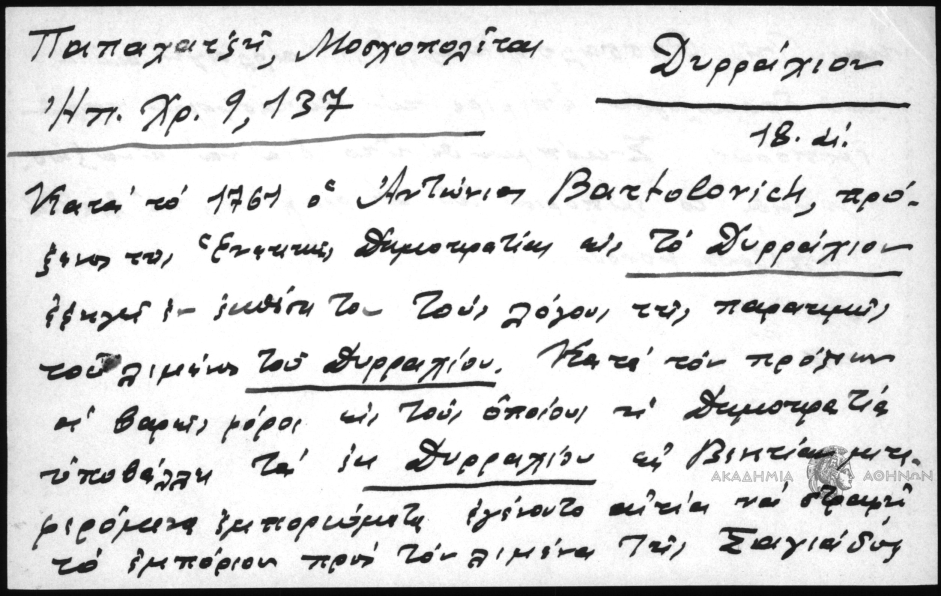 Παπαχατζῆ, Μοσχοπολῖται
Δυρράχιον
Ἠπ. Χρ. 9, 137
18. αἰ.
Κατά τό 1761 ὁ Ἀντώνιος Bartolovich, πρό-
ξενος τῆς Ἑνετικῆς Δημοκρατίας εἰς τό Δυρράχιον
ἐξηγεῖ ἐν ἐκθέσει του τούς λόγους τῆς παρακμῆς
τοῦ λιμένος τοῦ Δυρραχίου. Κατά τόν πρόξενον
οἱ βαρεῖς φόροι εἰς τούς ὁποίους ἡ Δημοκρατία
ὑποβάλλει τά ἐκ Δυρραχίου εἰς Βενετίαν μετα-
φερόμενα ἐμπορεύματα ἐγένοντο αἰτία νά στραφῇ
τό ἐμπόριον πρός τόν λιμένα τῆς Σαγιάδος
ΑΚΑΔΗΜΙΑ ΑΘΗΝΩΝ